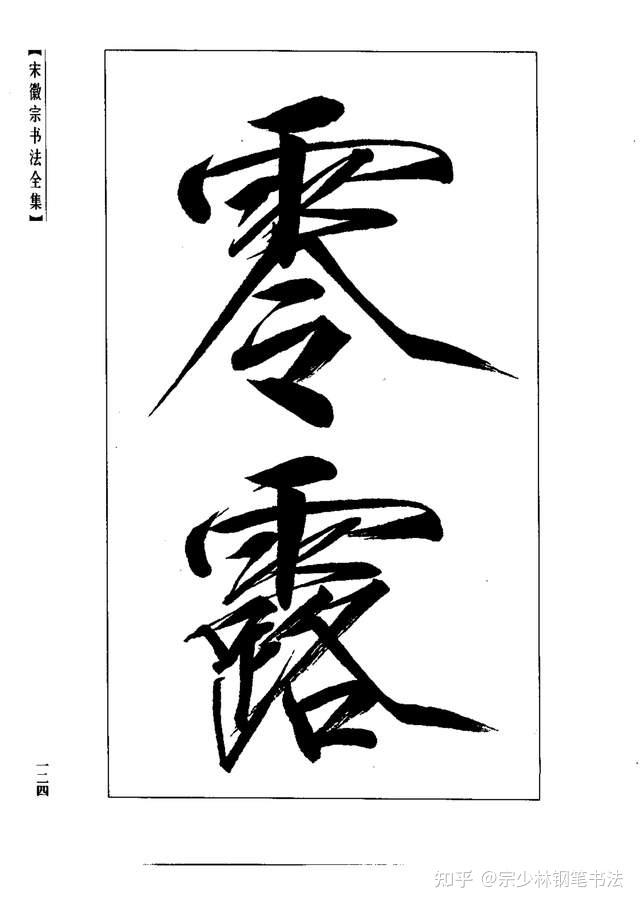 【宋徽宗书法全集】
零
露
一二四
知乎 @宗少林钢笔书法